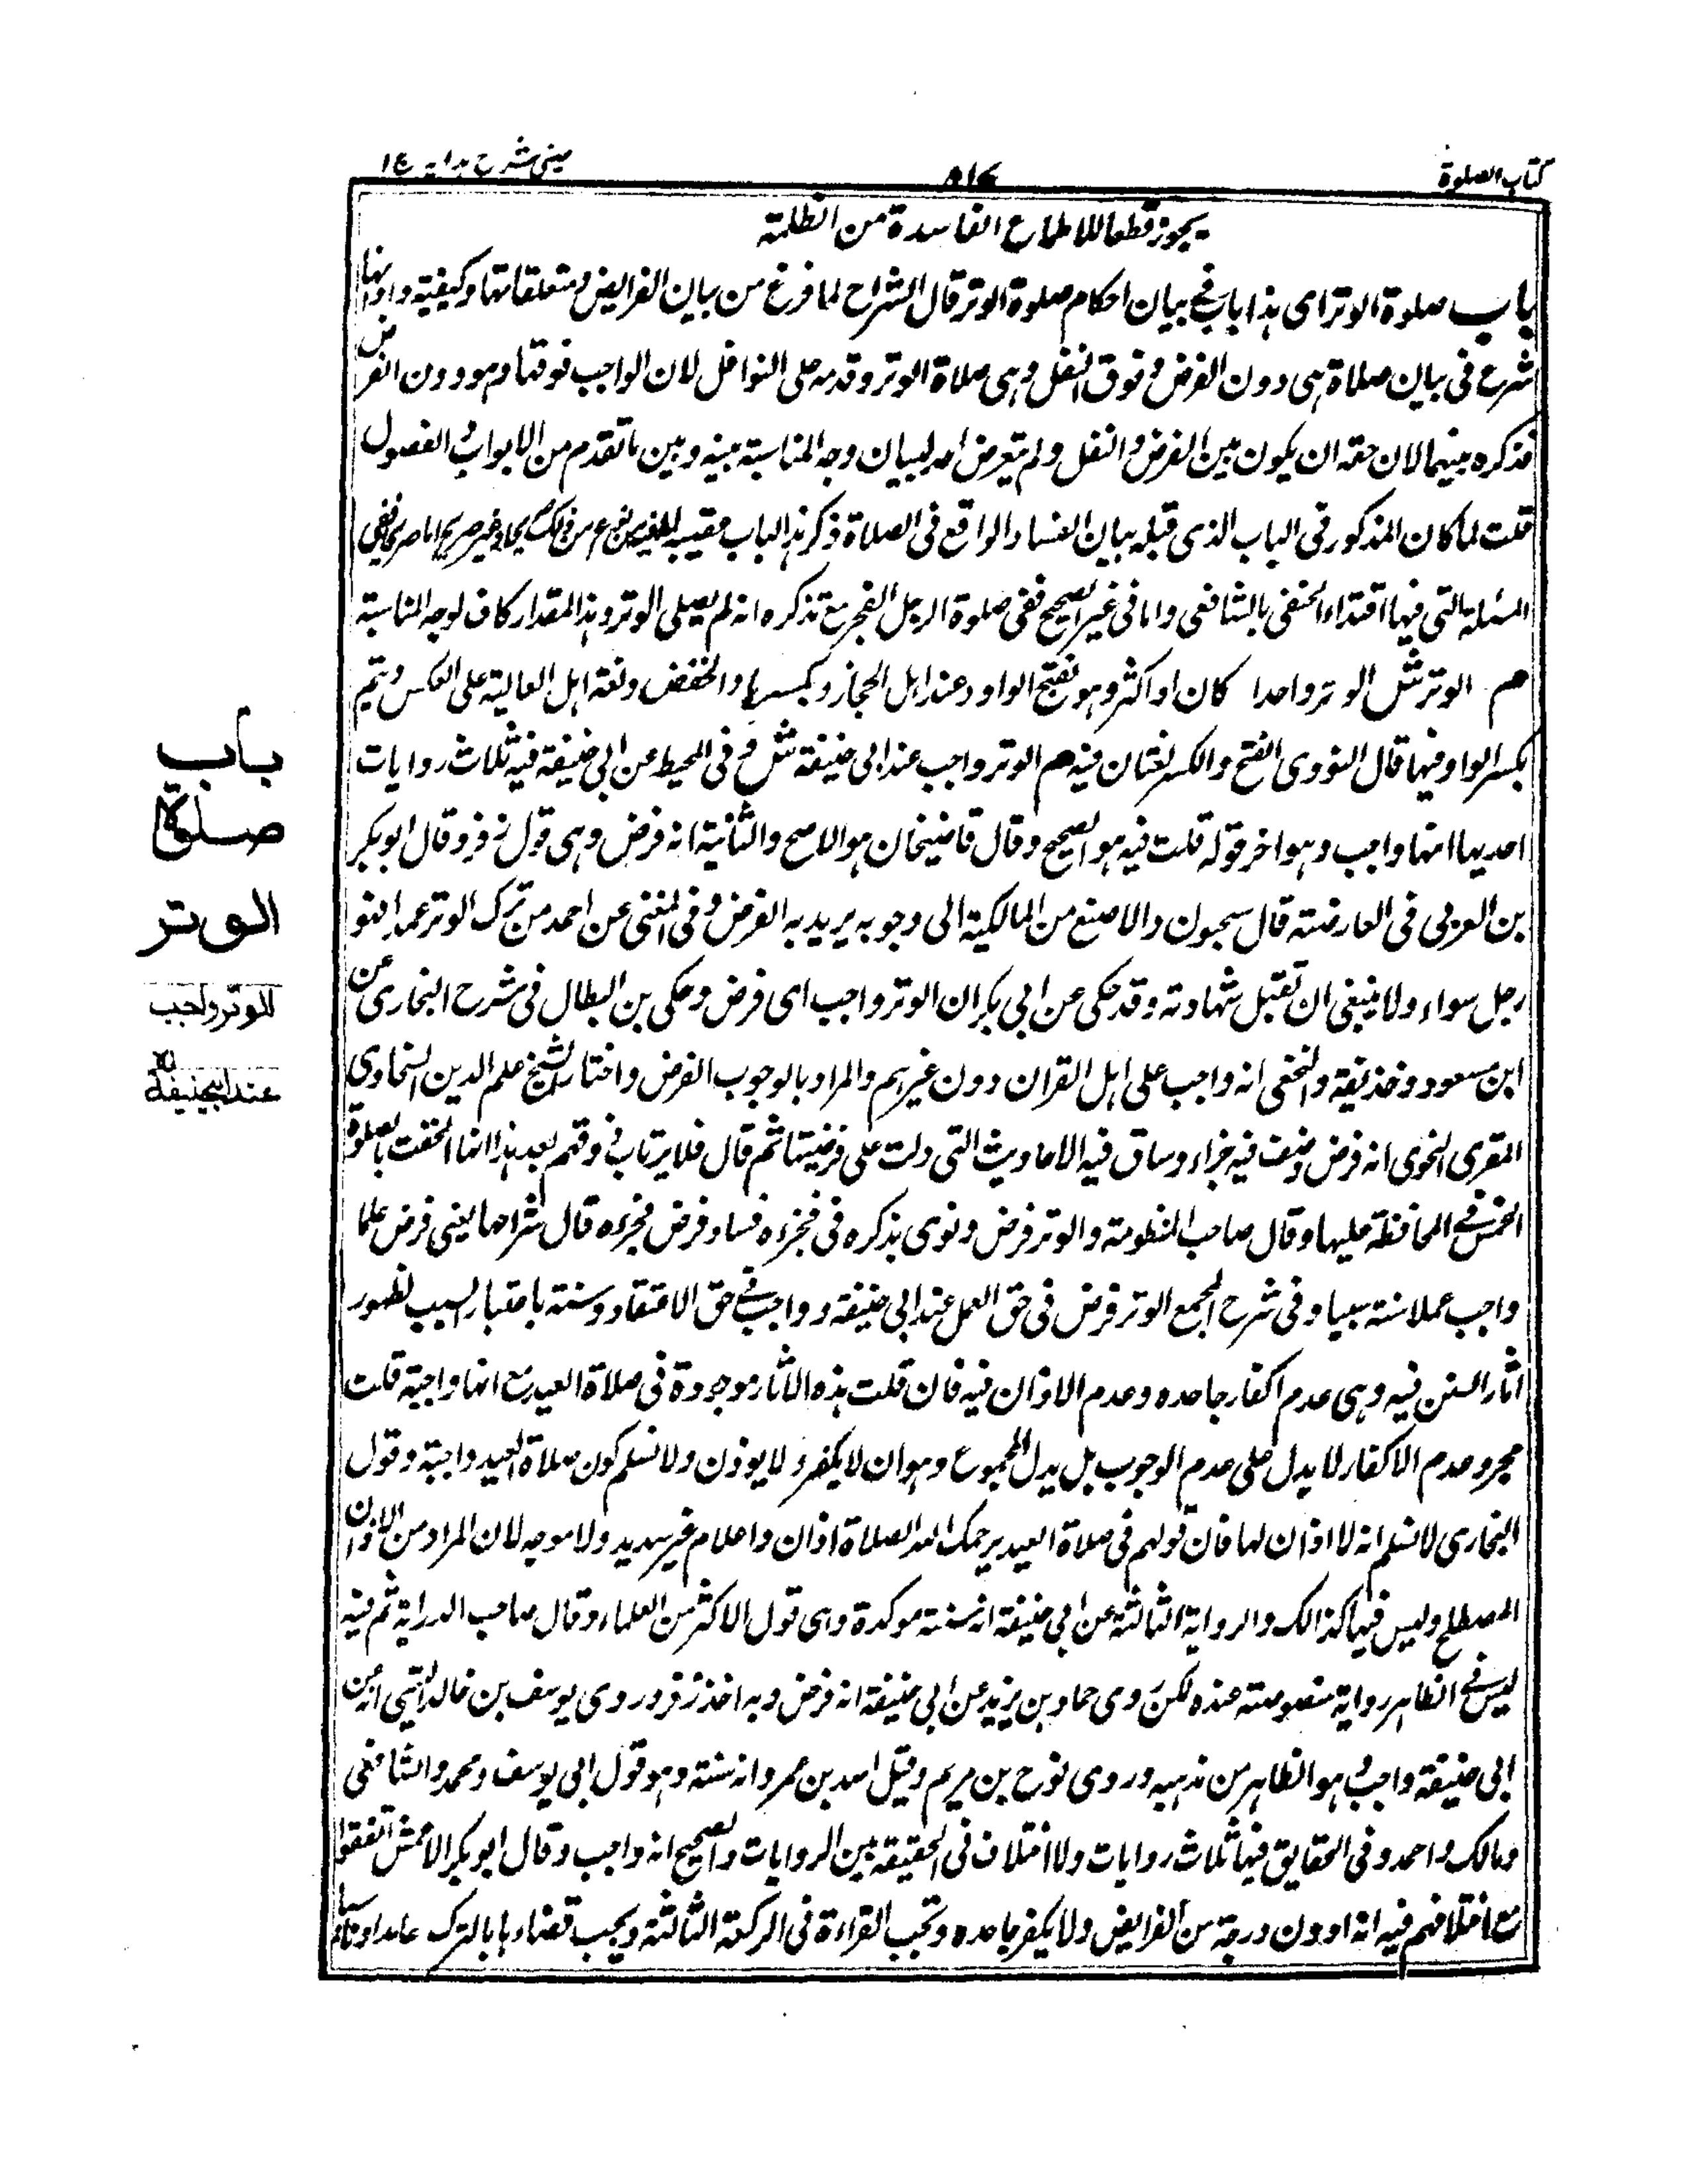 كتاب الصلوة
٨١٧
عينى شرح هدايه ج ١
يجوز قطعا للاطماع الفاسدة من الظلمة
باب صلوة الوتر اى هذا باب فى بيان احكام صلوة الوتر قال الشراح لما فرغ من بيان الفرايض ومتعلقاتها وكيفيته وادائها
شرع فى بيان صلاة هى دون الفرض وفوق النفل وهى صلاة الوتر وقدمه على النوافل لان الواجب فوقها وهو دون الفرض
فذكره بينهما لان حقه ان يكون بين الفرض والنفل ولم يتعرض احد لبيان وجه المناسبة بينه وبين ما تقدم من الابواب والفصول
قلت لما كان المذكور فى الباب الذى قبله بيان الفساد الواقع فى الصلاة ذكر هذا الباب عقيبه
المسئلة التى فيها اقتداء الحنفى بالشافعى واما فى غير الصحيح ففى صلوة الرجل الفجر مع تذكره انه لم يصلى الوتر وهذا المقدار كاف لوجه المناسبة
م الوتر ش الوتر واحدا كان او اكثر وهو بفتح الواو وعند اهل الحجاز وكسرها والخفض ولغة اهل العالية على العكس وتميم
بكسر الواو فيها قال النووى الفتح والكسر لغتان فيه م الوتر واجب عند ابى حنيفة ش وفى المحيط عن ابى حنيفة فيه ثلاث روايات
احديها انها واجب وهو اخر قوله قلت فيه هو الصحيح وقال قاضيخان هو الاصح والثانية انه فرض وهى قول زفر وقال ابو بكر
بن العربى فى العارضة قال سحبون والاصنع من المالكية الى وجوبه يريد به الفرض وفى المغنى عن احمد من ترك الوتر عمدا فهو
رجل سواء ولا ينبغى ان تقبل شهادته وقد حكى عن ابى بكر ان الوتر واجب اى فرض وحكى بن البطال فى شرح البخارى عن
ابن مسعود وحذيفة والنخعى انه واجب على اهل القران دون غيرهم والمراد بالوجوب الفرض واختار الشيخ علم الدين السخاوى
المقرى النحوى انه فرض وصنف فيه جزاء وساق فيه الاحاديث التى دلت على فرضيتها ثم قال فلا يرتاب ذو فهم بعد هذا انها الحقت بالصلوة
الخمس فى المحافظة عليها وقال صاحب المنظومة والوتر فرض ونوى بذكره فى فجزه فساد فرض فجره قال شراحها يعنى فرض علما
واجب عملا سنة سببا وفى شرح المجمع الوتر فرض فى حق العمل عند ابى حنيفة وواجب فى حق الاعتقاد وسنة باعتبار السبب لظهور
اثار السنن فيه وهى عدم اكفار جاحده وعدم الاذان فيه فان قلت هذه الاثار موجودة فى صلاة العيد مع انها واجبة قلت
مجرد عدم الاكفار لا يدل على عدم الوجوب بل يدل المجموع وهو ان لا يكفر ولا يوذن ولا نسلم كون صلاة العيد واجبة وقول
البخارى لا نسلم انه لا اذان لها فان قولهم فى صلاة العيد يرحمك الله الصلاة اذان واعلام غير سديد ولا موجه لان المراد من الاذان
المصطلح وليس فيها كذالك والرواية الثالثة عن ابى حنيفة انه سنة موكدة وهى قول الاكثر من العلماء وقال صاحب الدراية ثم فيه
ليس فى الظاهر رواية منصوصة عنده لكن روى حماد بن يزيد عن ابى حنيفة انه فرض وبه اخذ زفر وروى يوسف بن خالد التيمى انه عن
ابى حنيفة واجب وهو الظاهر من مذهبه وروى نوح بن مريم وقيل اسد بن عمر وانه سنة وهو قول ابى يوسف ومحمد والشافعى
ومالك واحمد وفى الحقايق فيها ثلاث روايات ولا اختلاف فى الحقيقة بين الروايات والصحيح انه واجب وقال ابو بكر الاعمش اتفقوا
مع اختلافهم فيه انه ادون درجة من الفرايض ولا يكفر جاحده وتجب القراءة فى الركعة الثالثة ويجب قضاءها بالترك عامدا وناسيا
باب
صلوة
الوتر
الوتر واجب
عند ابيحنيفة